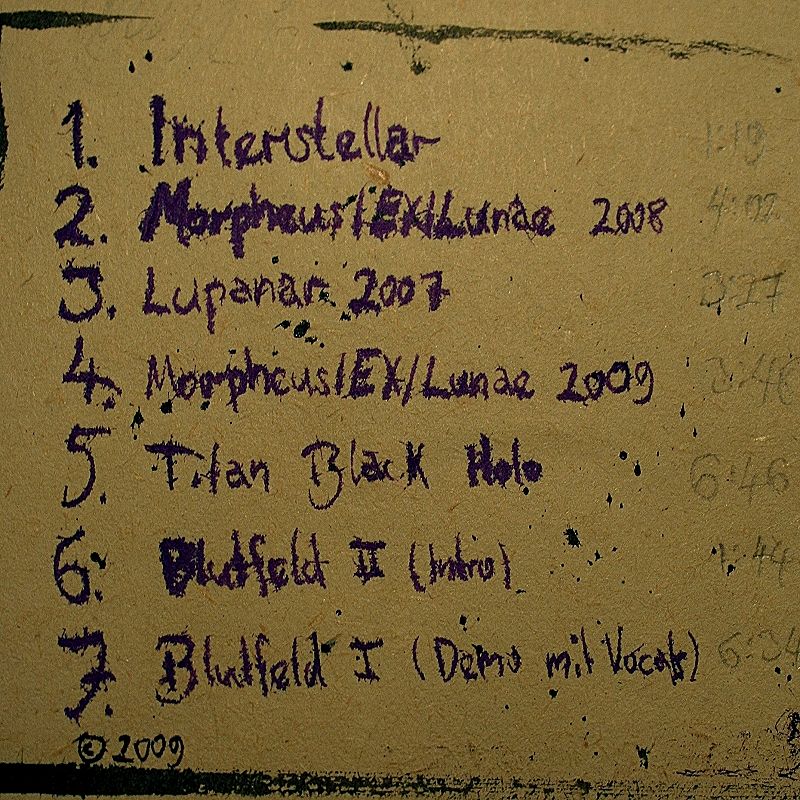 1. Interstellar 1:19
2. Morpheus/EX/Lunae 2008 4:02
3. Lupanar 2007 3:27
4. Morpheus/EX/Lunae 2009
5. Titan Black Hole 6:46
6. Blutfeld II (Intro) 1:44
7. Blutfeld I (Demo mit Vocals) 6:34
© 2009